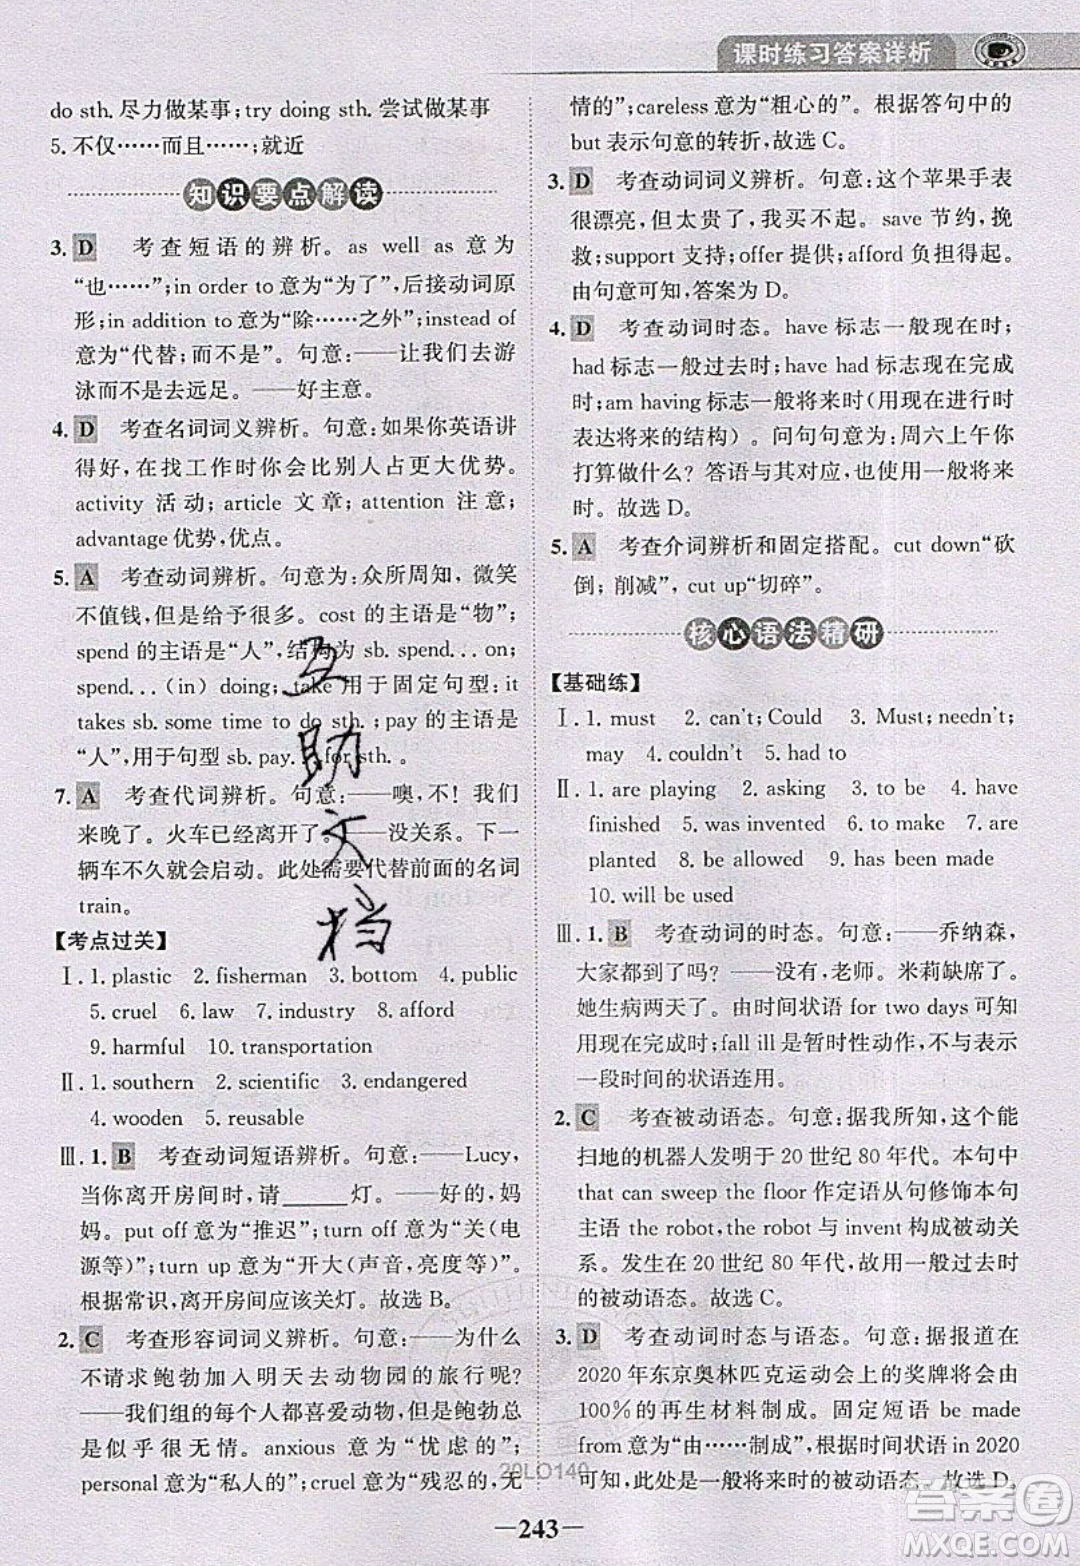 课时练习答案详析
do sth. 尽力做某事；try doing sth. 尝试做某事
5. 不仅……而且……；就近
知识要点解读
3. D 考查短语的辨析。as well as 意为
“也……”；in order to 意为“为了”，后接动词原
形；in addition to 意为“除……之外”；instead of
意为“代替；而不是”。句意：——让我们去游
泳而不是去远足。——好主意。
4. D 考查名词词义辨析。句意：如果你英语讲
得好，在找工作时你会比别人占更大优势。
activity 活动；article 文章；attention 注意；
advantage 优势，优点。
5. A 考查动词辨析。句意：众所周知，微笑
不值钱，但是给予很多。cost 的主语是“物”；
spend 的主语是“人”，结构为 sb. spend...on;
spend...(in) doing; take 用于固定句型：it
takes sb. some time to do sth.；pay 的主语是
“人”，用于句型 sb. pay...for sth.。
7. A 考查代词辨析。句意：——噢，不！我们
来晚了。火车已经离开了。——没关系。下一
辆车不久就会启动。此处需要代替前面的名词
train。
【考点过关】
Ⅰ. 1. plastic 2. fisherman 3. bottom 4. public
5. cruel 6. law 7. industry 8. afford
9. harmful 10. transportation
Ⅱ. 1. southern 2. scientific 3. endangered
4. wooden 5. reusable
Ⅲ. 1. B 考查动词短语辨析。句意：——Lucy,
当你离开房间时，请______灯。——好的，妈
妈。put off 意为“推迟”；turn off 意为“关（电
源等）”；turn up 意为“开大（声音，亮度等）”。
根据常识，离开房间应该关灯。故选 B。
2. C 考查形容词词义辨析。句意：——为什么
不请求鲍勃加入明天去动物园的旅行呢？
——我们组的每个人都喜爱动物，但是鲍勃总
是似乎很无情。anxious 意为“忧虑的”；
personal 意为“私人的”；cruel 意为“残忍的，无
情的”；careless 意为“粗心的”。根据答句中的
but 表示句意的转折，故选 C。
3. D 考查动词词义辨析。句意：这个苹果手表
很漂亮，但太贵了，我买不起。save 节约，挽
救；support 支持；offer 提供；afford 负担得起。
由句意可知，答案为 D。
4. D 考查动词时态。have 标志一般现在时；
had 标志一般过去时；have had 标志现在完成
时；am having 标志一般将来时（现在进行时
表达将来的结构）。问句句意为：周六上午你
打算做什么？答语与其对应，也使用一般将来
时。故选 D。
5. A 考查介词辨析和固定搭配。cut down“砍
倒；削减”，cut up“切碎”。
核心语法精研
【基础练】
Ⅰ. 1. must 2. can't; Could 3. Must; needn't;
may 4. couldn't 5. had to
Ⅱ. 1. are playing 2. asking 3. to do 4. have
finished 5. was invented 6. to make 7. are
planted 8. be allowed 9. has been made
10. will be used
Ⅲ. 1. B 考查动词的时态。句意：——乔纳森，
大家都到了吗？——没有，老师。米莉缺席了。
她生病两天了。由时间状语 for two days 可知
用现在完成时；fall ill 是暂时性动作，不与表示
一段时间的状语连用。
2. C 考查被动语态。句意：据我所知，这个能
扫地的机器人发明于 20 世纪 80 年代。本句中
that can sweep the floor 作定语从句修饰本句
主语 the robot, the robot 与 invent 构成被动关
系。发生在 20 世纪 80 年代，故用一般过去时
的被动语态。故选 C。
3. D 考查动词时态与语态。句意：据报道在
2020 年东京奥林匹克运动会上所有的奖牌由
100%的再生材料制成。固定短语 be made
from 意为“由……制成”，根据时间状语 in 2020
可知，此处是一般将来时的被动语态。故选 D。
互助文档
20LO140
—243—
答案圈
MXQE.COM